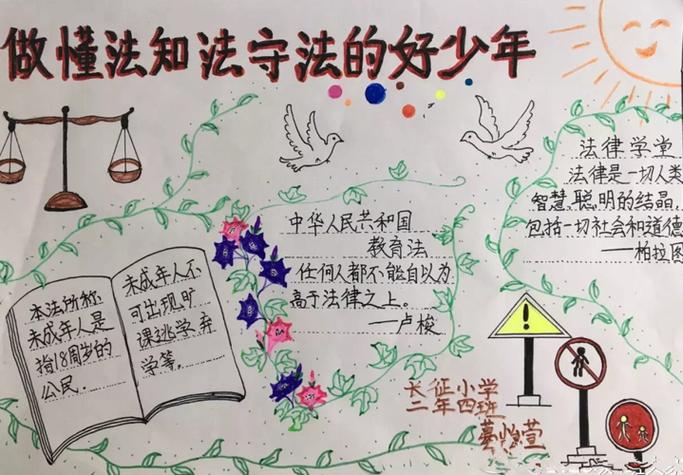 做懂法知法守法的好少年
法律学堂
法律是一切人类
智慧聪明的结晶,
包括一切社会和道德
——柏拉图
中华人民共和国
教育法
任何人都不能自以为
高于法律之上。
——卢梭
本法所称
未成年人是
指18周岁的
公民.
未成年人不
可出现旷
课逃学弃
学等.
!
长征小学
二年四班